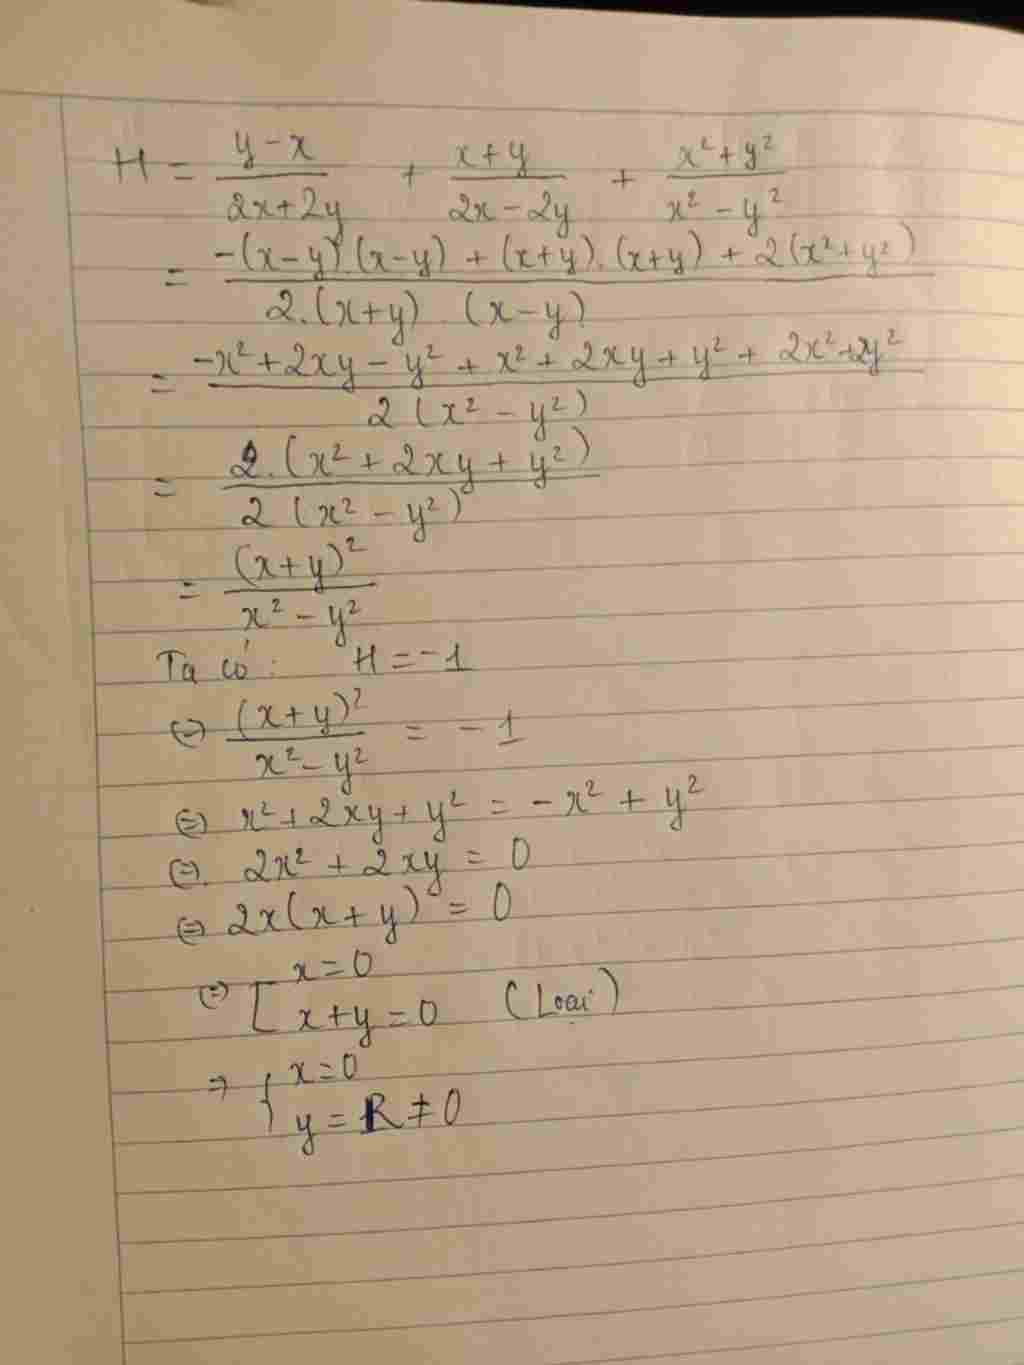 H = (y-x)/(2x+2y) + (x+y)/(2x-2y) + (x²+y²)/(x²-y²)
= (-(x-y).(x-y) + (x+y).(x+y) + 2(x²+y²))/(2.(x+y).(x-y))
= (-x²+2xy-y²+x²+2xy+y²+2x²+2y²)/(2(x²-y²))
= (2.(x²+2xy+y²))/(2(x²-y²))
= (x+y)²/(x²-y²)
Ta có: H = -1
⇔ (x+y)²/(x²-y²) = -1
⇔ x²+2xy+y² = -x²+y²
⇔ 2x²+2xy = 0
⇔ 2x(x+y) = 0
⇔ [ x=0
x+y=0 (Loại)
⇒ { x=0
y=R≠0